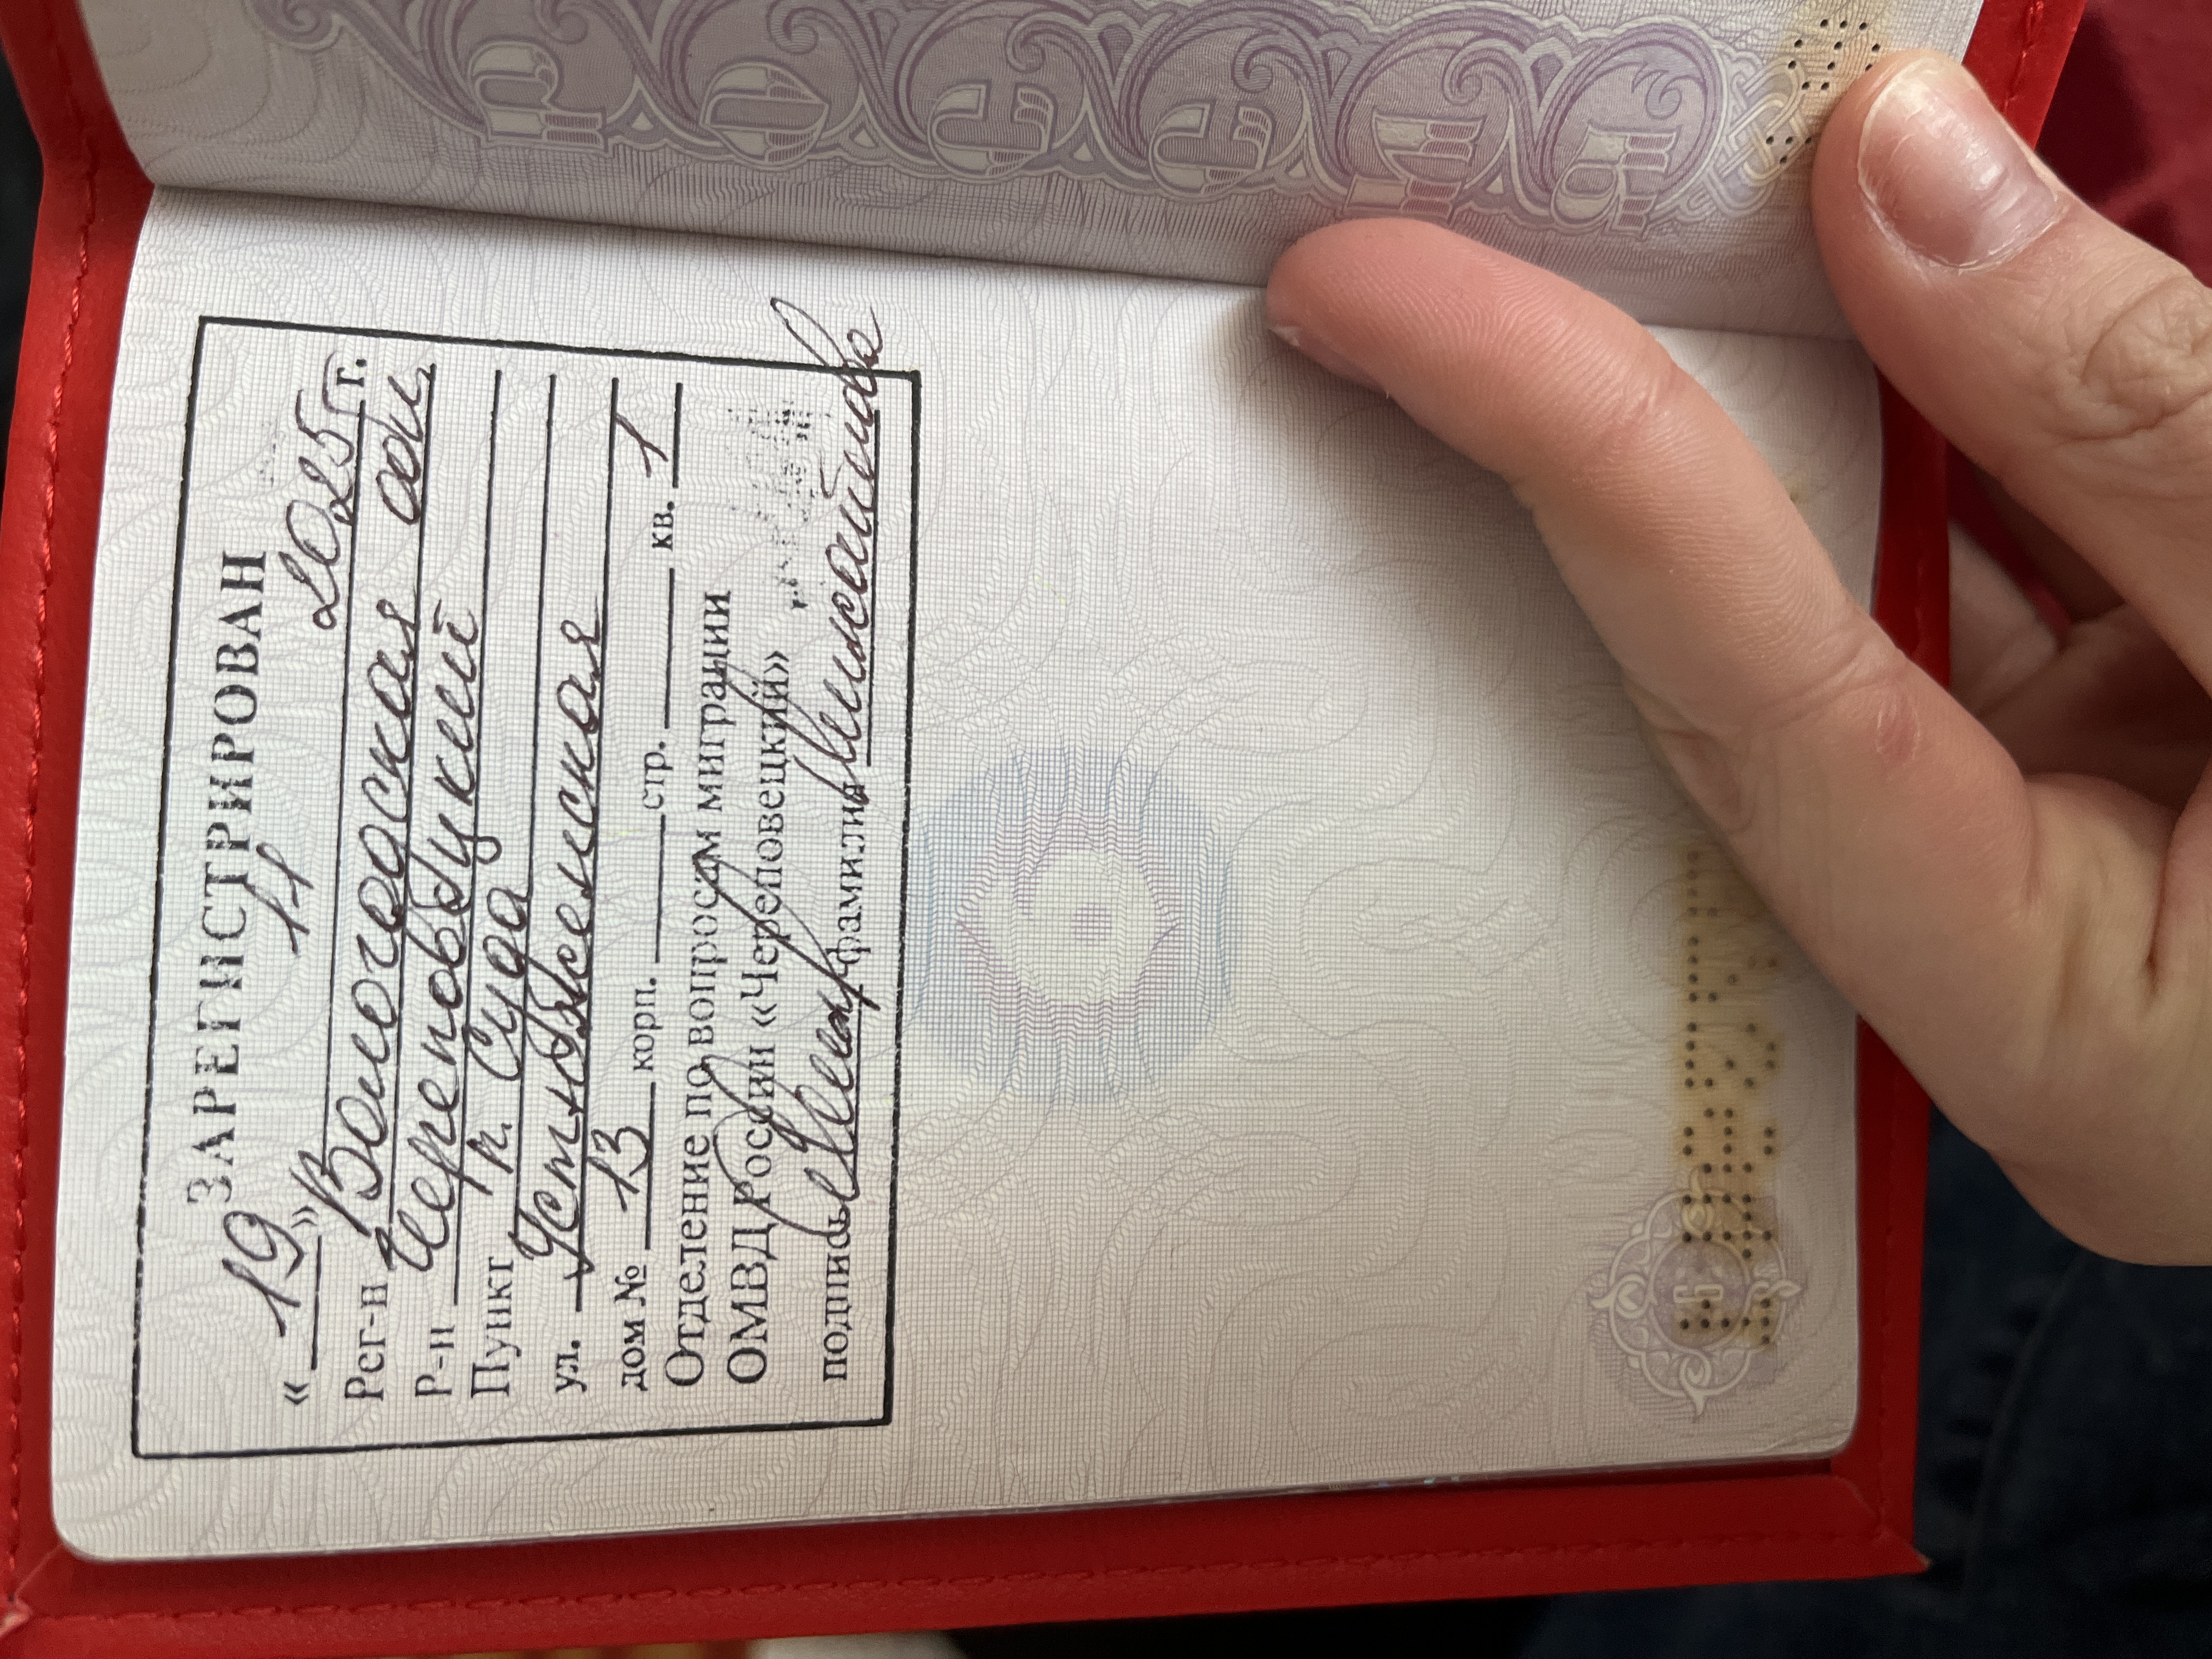 РОССИЯ
ЗАРЕГИСТРИРОВАН
« 19 » 11 2025 г.
Рег-н Вологодская обл.
Р-н Череповецкий
Пункт п. Суда
ул. Устюженская
дом № 13 корп. ____ стр. ____ кв. 1
Отделение по вопросам миграции
ОМВД России «Череповецкий»
подпись фамилия
6